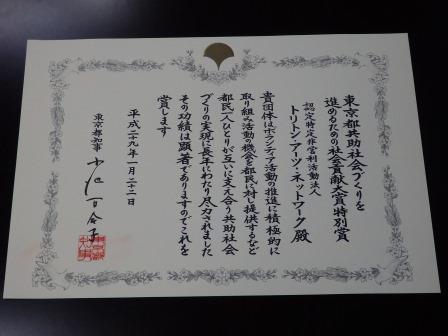 東京都共助社会づくりを
進めるための社会貢献大賞特別賞
認定特定非営利活動法人
トリトン・アーツ・ネットワーク 殿
貴団体はボランティア活動の推進に積極的に
取り組み活動の機会を都民に対し提供するなど
都民一人ひとりが互いに支え合う共助社会
づくりの実現に長年にわたり尽力されました
その功績は顕著でありますのでこれを
賞します
平成二十九年一月二十二日
東京都知事 小池百合子